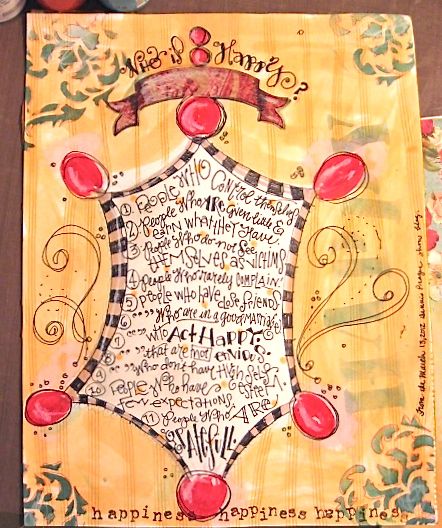 Who is Happy?
1. People who control themselves
2. People who ARE given little &
learn what they have
3. People who do not see
themselves as victims
4. People who rarely complain!
5. people who have close friends
6. "" Who are in a good marriage
7. "" who Act Happy.
8. "" that are not envious.
9. "" who don't have
10. People who have
few expectations.
11. People who ARE
grateful.
From de March 13, 2012 dennis Prager show blog.
happiness happiness happiness